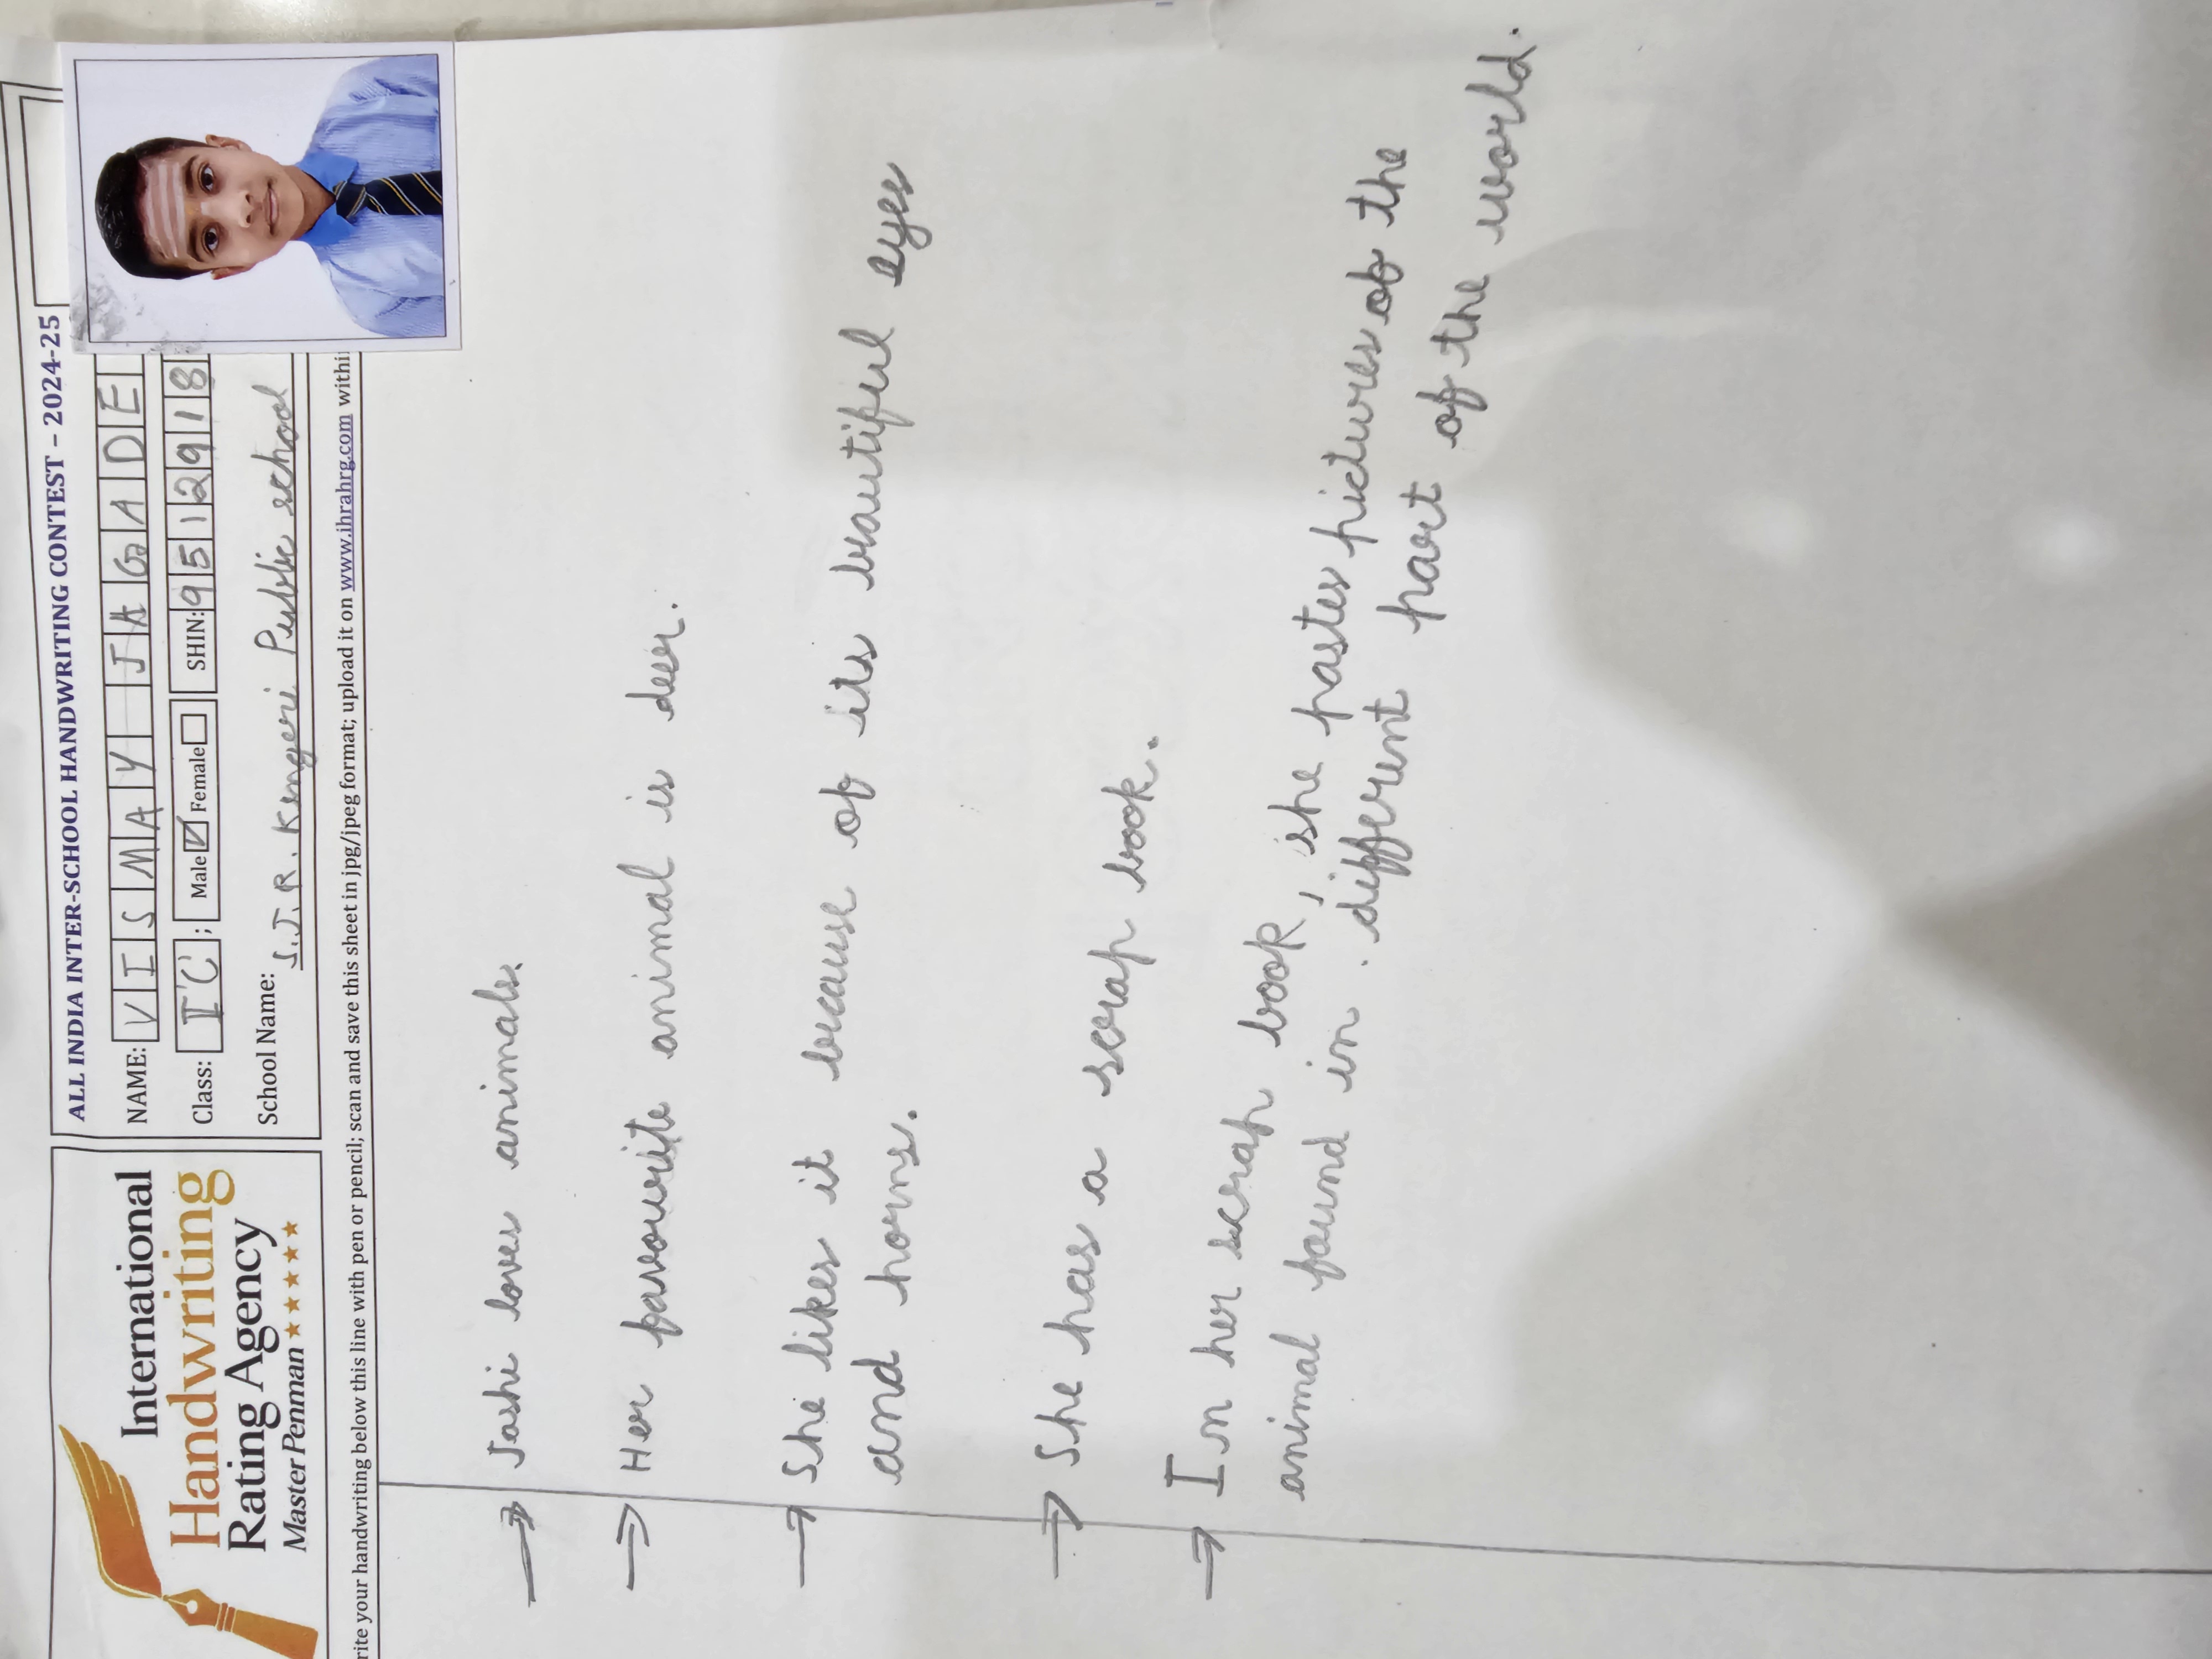 International
Handwriting
Rating Agency
Master Penman
ALL INDIA INTER-SCHOOL HANDWRITING CONTEST – 2024-25
NAME: VISMAY JAGADE
Class: II 'C' ; Male Female SHIN: 9512918
School Name: S.J.R. Kengeri Public school
rite your handwriting below this line with pen or pencil; scan and save this sheet in jpg/jpeg format; upload it on www.ihrahrg.com withi
→ Joshi loves animals.
→ Her favourite animal is deer.
→ She likes it because of its beautiful eyes
and horns.
→ She has a scrap book.
→ In her scrap book, she pastes pictures of the
animal found in different part of the world.